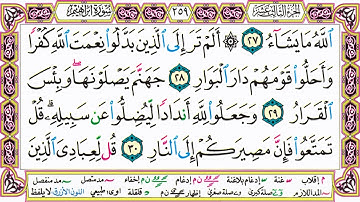 الجزء الثالث عشر ٢٥٩ سورة إبراهيم
اللَّهُ مَا يَشَاءُ ﴿٢٧﴾ ۞ أَلَمْ تَرَ إِلَى الَّذِينَ بَدَّلُوا نِعْمَتَ اللَّهِ كُفْرًا
وَأَحَلُّوا قَوْمَهُمْ دَارَ الْبَوَارِ ﴿٢٨﴾ جَهَنَّمَ يَصْلَوْنَهَا وَبِئْسَ
الْقَرَارُ ﴿٢٩﴾ وَجَعَلُوا لِلَّهِ أَندَادًا لِّيُضِلُّوا عَن سَبِيلِهِ قُلْ
تَمَتَّعُوا فَإِنَّ مَصِيرَكُمْ إِلَى النَّارِ ﴿٣٠﴾ قُل لِّعِبَادِيَ الَّذِينَ